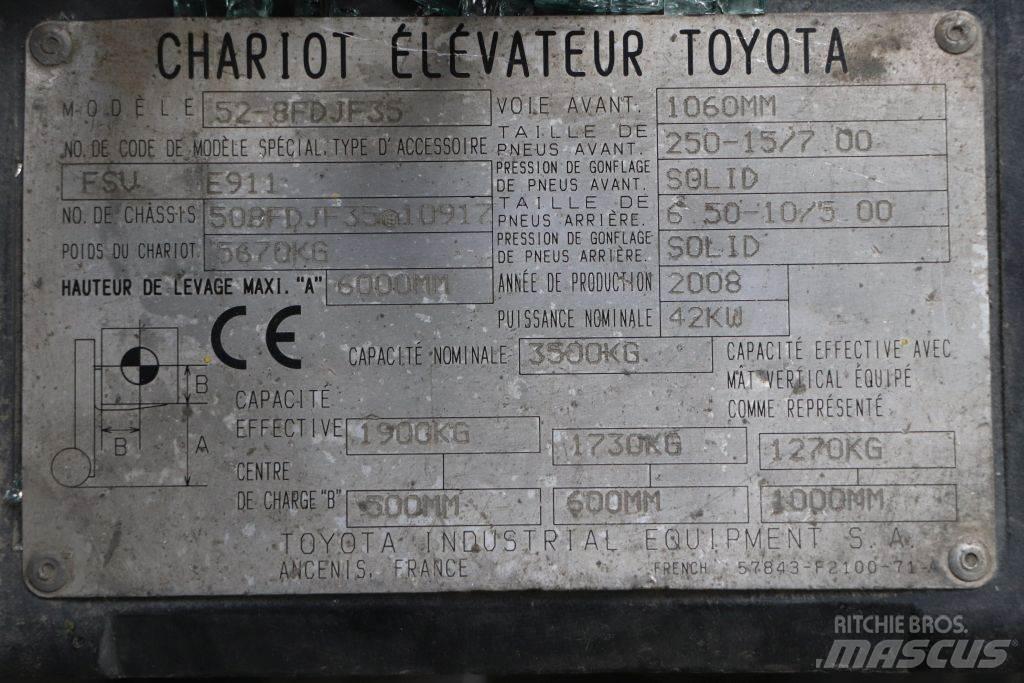 CHARIOT ÉLÉVATEUR TOYOTA
MODÈLE 52-8FDJF35
NO. DE CODE DE MODÈLE SPÉCIAL. TYPE D'ACCESSOIRE
FSV E911
NO. DE CHÂSSIS 508FDJF35@10917
POIDS DU CHARIOT. 5670KG
HAUTEUR DE LEVAGE MAXI. "A" 6000MM
VOIE AVANT. 1060MM
TAILLE DE
PNEUS AVANT. 250-15/7 00
PRESSION DE GONFLAGE
DE PNEUS AVANT. SOLID
TAILLE DE
PNEUS ARRIÈRE. 6 50-10/5 00
PRESSION DE GONFLAGE
DE PNEUS ARRIÈRE. SOLID
ANNÉE DE PRODUCTION 2008
PUISSANCE NOMINALE 42KW
CE
CAPACITÉ NOMINALE 3500KG
CAPACITÉ EFFECTIVE AVEC
MÂT VERTICAL ÉQUIPÉ
COMME REPRÉSENTÉ
B
B A
CAPACITÉ
EFFECTIVE 1900KG 1730KG 1270KG
CENTRE
DE CHARGE "B" 500MM 600MM 1000MM
TOYOTA INDUSTRIAL EQUIPMENT S. A.
ANCENIS, FRANCE FRENCH 57843-F2100-71-A
RITCHIE BROS.
MASCUS